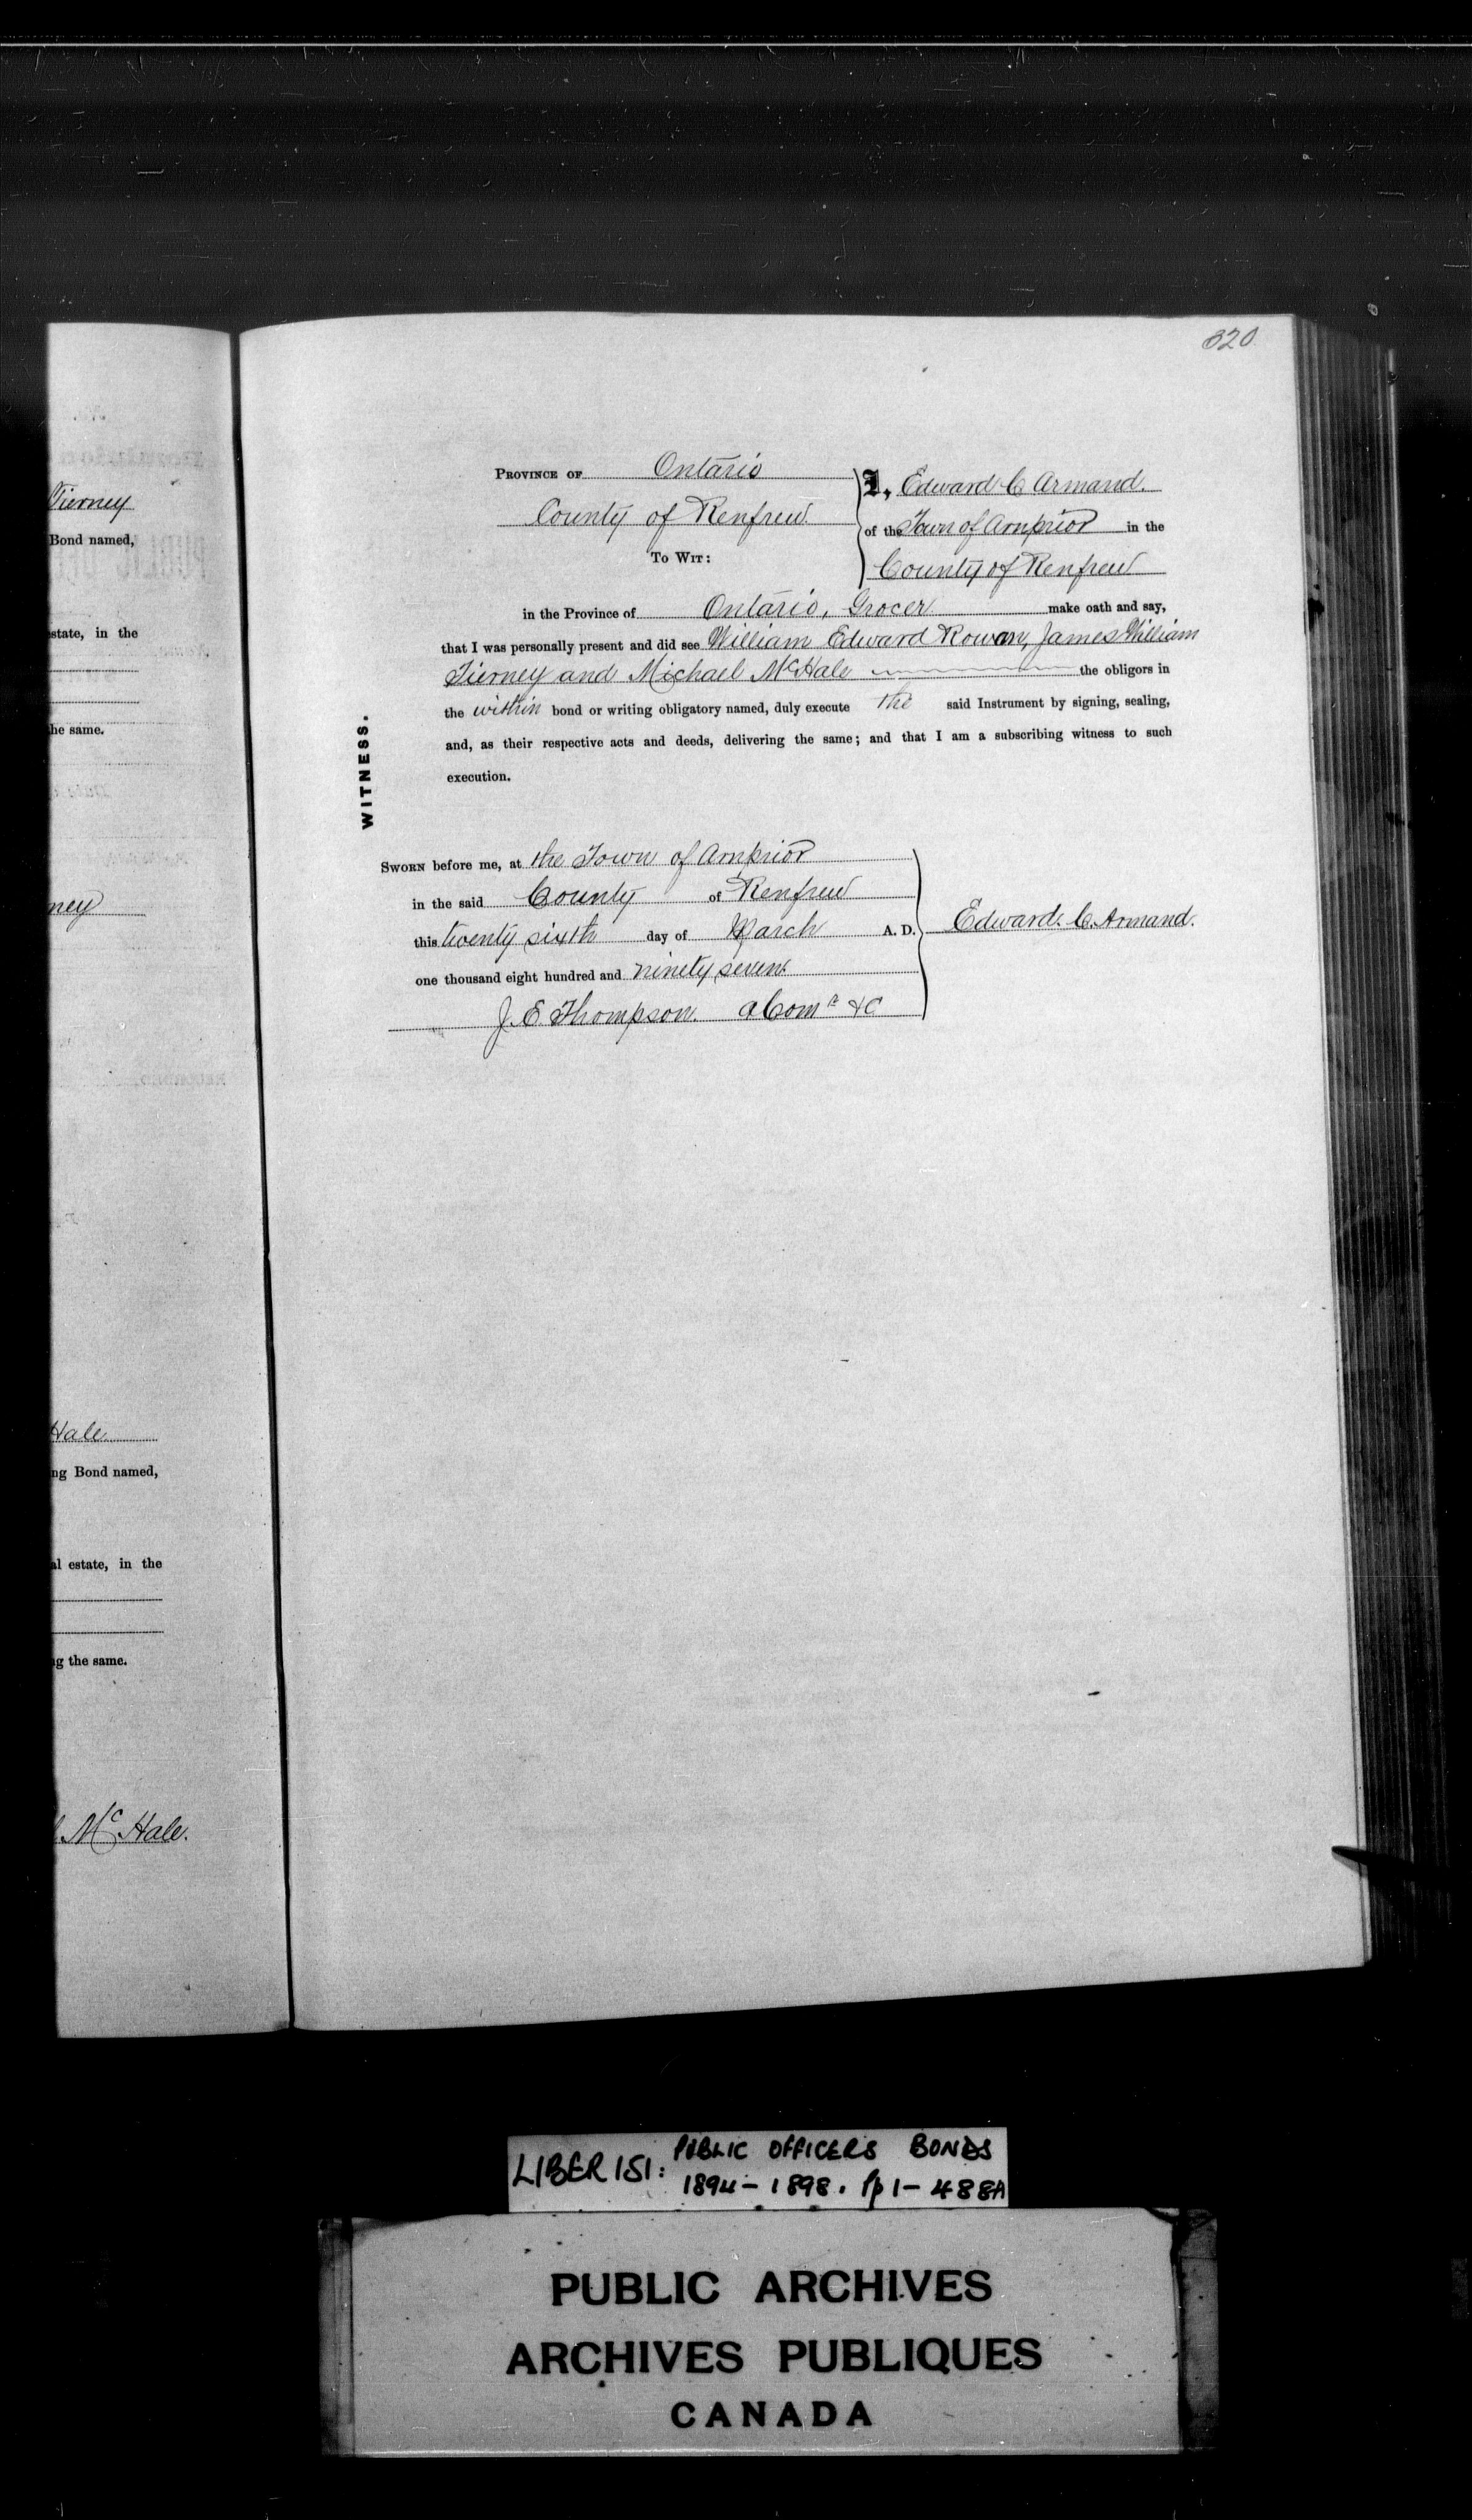 320
Tierney
Bond named,
state, in the
he same.
ney
Hale
ng Bond named,
al estate, in the
g the same.
Mc Hale.
PROVINCE OF Ontario
County of Renfrew
TO WIT:
I, Edward C Armand.
of the Town of Arnprior in the
County of Renfrew
in the Province of Ontario, Grocer make oath and say,
that I was personally present and did see William Edward Rowan, James William
Tierney and Michael McHale the obligors in
the within bond or writing obligatory named, duly execute the said Instrument by signing, sealing,
and, as their respective acts and deeds, delivering the same; and that I am a subscribing witness to such
execution.
WITNESS.
SWORN before me, at the Town of Arnprior
in the said County of Renfrew
this twenty sixth day of March A. D.
one thousand eight hundred and ninety seven.
J. E. Thompson. a Comr &c
Edward. C. Armand.
LIBER 151: PUBLIC OFFICERS BONDS
1894-1898. pp 1-488A
PUBLIC ARCHIVES
ARCHIVES PUBLIQUES
CANADA